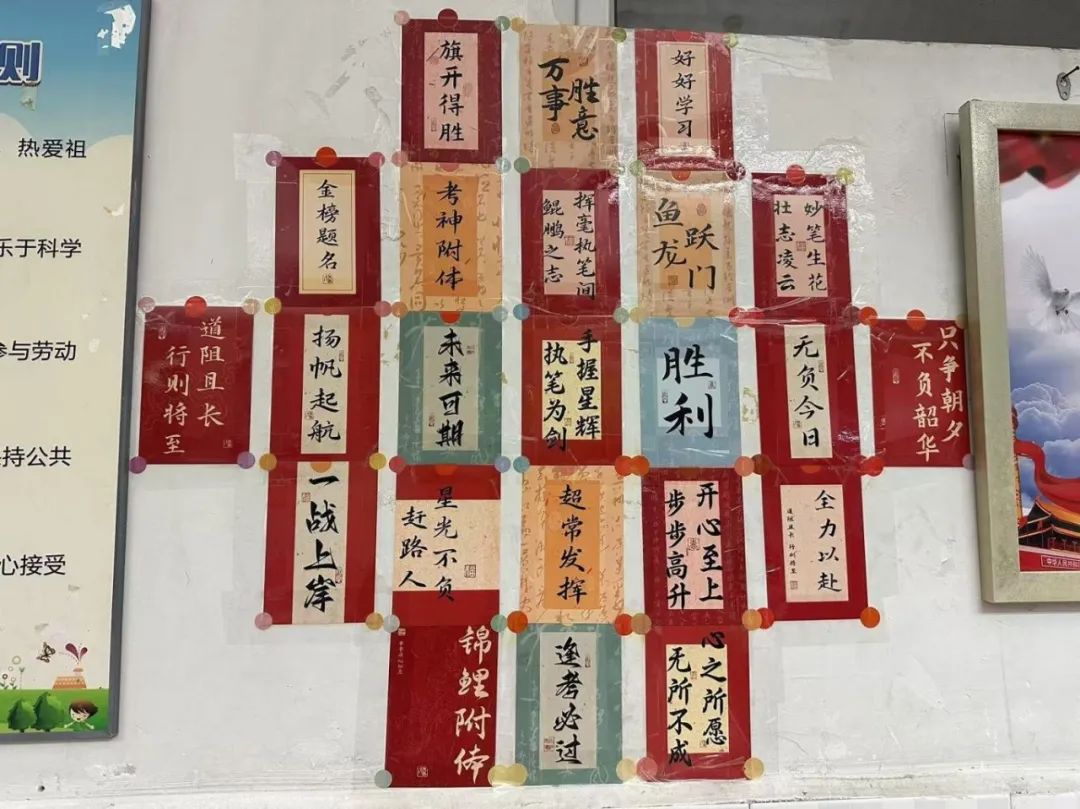 则
热爱祖
乐于科学
参与劳动
持公共
心接受
旗开得胜
万事
胜意
好好学习
金榜题名
考神附体
挥毫执笔间
鲲鹏之志
鱼跃
龙门
妙笔生花
壮志凌云
道阻且长
行则将至
扬帆起航
未来可期
手握星辉
执笔为剑
胜利
无负今日
只争朝夕
不负韶华
一战上岸
星光不负
赶路人
超常发挥
开心至上
步步高升
全力以赴
道阻且长 行则将至
锦鲤附体
逢考必过
心之所愿
无所不成
中华人民共和